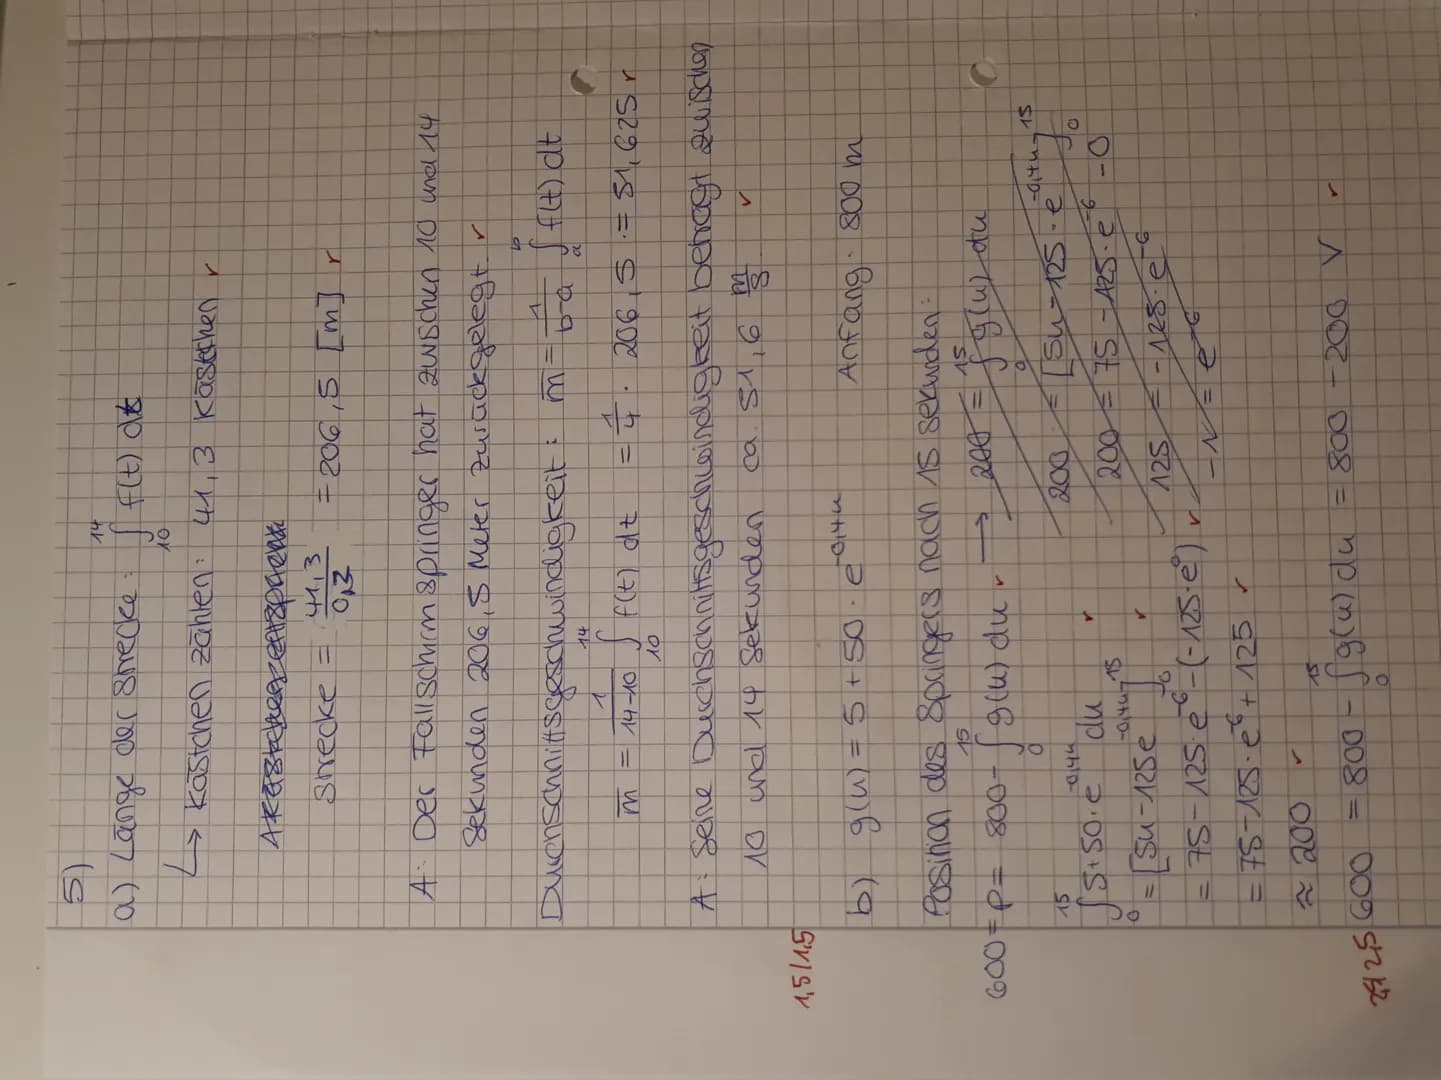 5)
a) Länge der Strecke: ∫₁₀¹⁴ f(t) dt
↳ Kästchen zählen: 41,3 Kästchen r
Strecke = 41,3/0,2 = 206,5 [m] r
A: Der Fallschirmspringer hat zwischen 10 und 14
Sekunden 206,5 Meter zurückgelegt r
Durchschnittsgeschwindigkeit: m̅ = 1/(b-a) ∫ₐᵇ f(t) dt
m̅ = 1/(14-10) ∫₁₀¹⁴ f(t) dt = 1/4 · 206,5 = 51,625 r
A: Seine Durchschnittsgeschwindigkeit beträgt zwischen
10 und 14 Sekunden ca. 51,6 m/s r
1,5/1,5
b) g(u) = 5 + 50 · e^-0,4u Anfang: 800 m
Position des Springers nach 15 Sekunden:
600 = P = 800 - ∫₀¹⁵ g(u) du r → 200 = ∫₀¹⁵ g(u) du
200 = [5u - 125 · e^-0,4u]₀¹⁵
200 = 75 - 125 · e^-6 - 0
125 = -125 · e^-6
-1 = e^-6
∫₀¹⁵ 5+50·e^-0,4u du r
= [5u - 125e^-0,4u]₀¹⁵ r
= 75 - 125 · e^-6 - (-125 · e^0) r
= 75 - 125 · e^-6 + 125 r
≈ 200 r
600 = 800 - ∫₀¹⁵ g(u) du = 800 - 200 V r